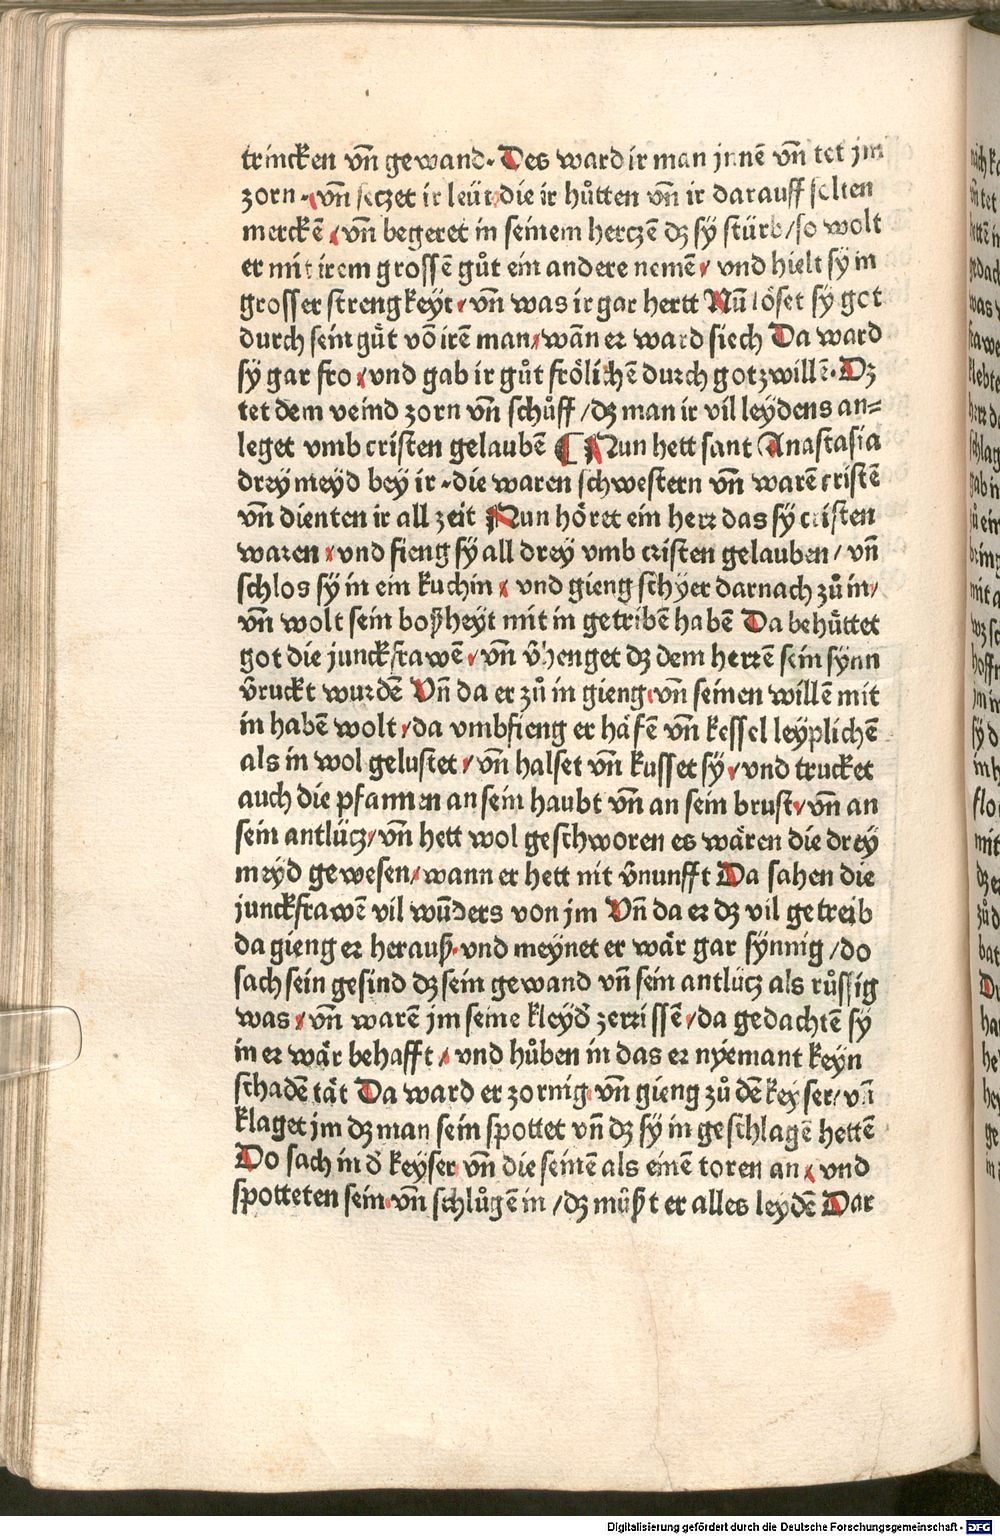 trincken vñ gewand. Des ward ir man jnnē vñ tet jm
zorn. vñ seczet ir leüt die ir hůtten vñ ir darauff solten
merckē / vñ begeret in seinem herczē dz sÿ stürb / so wolt
er mit irem grossē gůt ein andere nemē / vnd hielt sÿ in
grosser strengkeÿt / vñ was ir gar hertt Nū löset sÿ got
durch sein gůt vō irē man / wān er ward siech Da ward
sÿ gar fro / vnd gab ir gůt frölichē durch gotz willē. Dz
tet dem veind zorn vñ schůff / dz man ir vil leÿdens an=
leget vmb cristen gelaubē ¶ Nun hett sant Anastasia
dreÿ meÿd beÿ ir. die waren schwestern vñ warē cristē
vñ dienten ir all zeit Nun höret ein herr das sÿ cristen
waren / vnd fieng sÿ all dreÿ vmb cristen gelauben / vñ
schlos sÿ in ein kuchin / vnd gieng schÿer darnach zů in /
vñ wolt sein boßheÿt mit in getribē haben Da behůttet
got die junckfrawē / vñ v̄henget dz dem herrē sein sÿnn
v̄ruckt wurdē Vñ da er zů in gieng vñ seinen willē mit
in habē wolt / da vmbfieng er häfē vñ kessel leÿplichē
als in wol gelustet / vñ halset vñ kusset sÿ / vnd trucket
auch die pfannen an sein haubt vñ an sein brust / vñ an
sein antlücz / vñ hett wol geschworen es wären die dreÿ
meÿd gewesen / wann er hett nit v̄nunfft Da sahen die
junckfrawē vil wūders von jm Vñ da er dz vil getreib
da gieng er herauß vnd meÿnet er wär gar sÿnnig / do
sach sein gesind dz sein gewand vñ sein antlücz als růssig
was / vñ warē jm seine kleÿd̄ zerrissē / da gedachtē sÿ
in er wär behafft / vnd hůben in das er nÿemant keÿn
schadē tät Da ward er zornig vñ gieng zů dē keÿser / vñ
klaget jm dz man sein spottet vñ dz sÿ in geschlagē hettē
Do sach in d̄ keÿser vñ die seinē als einē toren an / vnd
spotteten sein vñ schlůgē in / dz můßt er alles leÿdē Dar
Digitalisierung gefördert durch die Deutsche Forschungsgemeinschaft - DFG